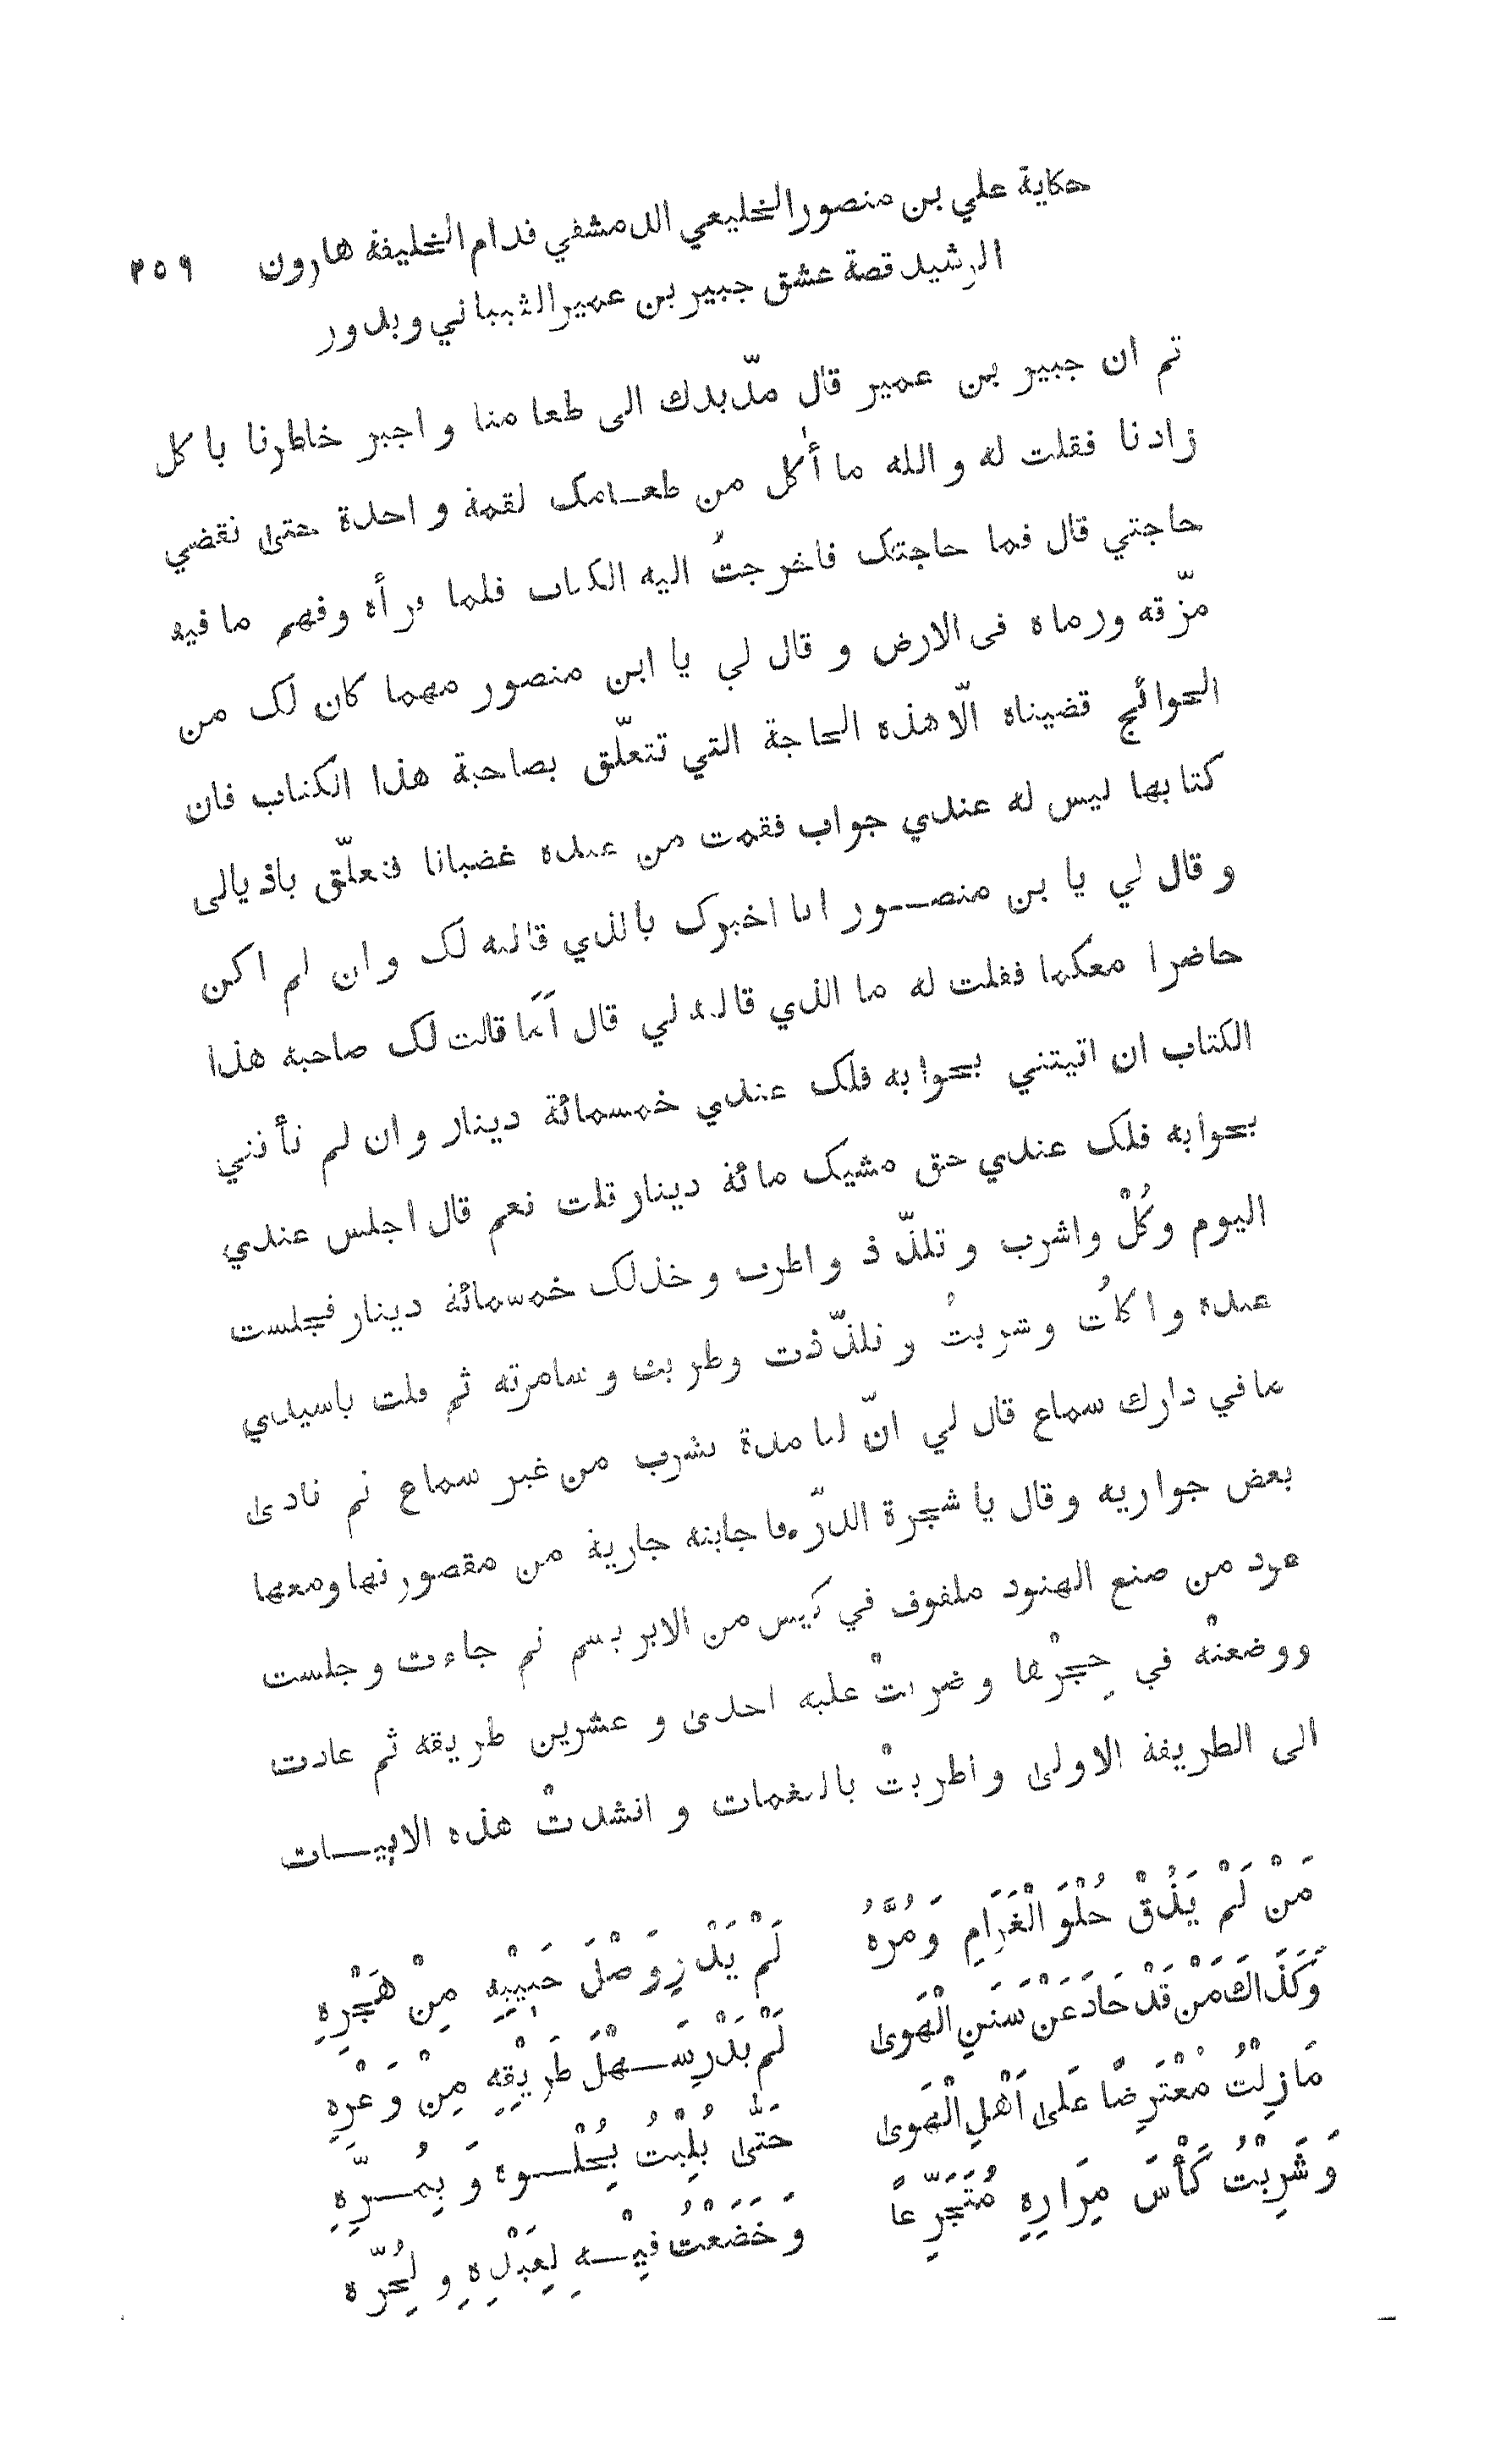 حكاية علي بن منصور الخليعي الدمشقي قدام الخليفة هارون ٢٥٩
الرشيد قصة عشق جبير بن عمير الشيباني وبدور
ثم ان جبير بن عمير قال مدّ يدك الى طعامنا واجبر خاطرنا باكل
زادنا فقلت له والله ما أكل من طعـامك لقمة واحدة حتى تقضي
حاجتي قال فما حاجتك فاخرجتُ اليه الكتاب فلما قرأه وفهم ما فيه
مزّقه ورماه فى الارض وقال لي يا ابن منصور مهما كان لك من
الحوائج قضيناه الّا هذه الحاجة التي تتعلّق بصاحبة هذا الكتاب فان
كتابها ليس له عندي جواب فقمت من عنده غضبانا فتعلّق باذيالى
وقال لي يا بن منصـــور انا اخبرك بالذي قالته لك وان لم اكن
حاضرا معكما فقلت له ما الذي قالته لي قال اَمَا قالت لك صاحبة هذا
الكتاب ان اتيتني بجوابه فلك عندي خمسمائة دينار وان لم تأتني
بجوابه فلك عندي حق مشيك مائة دينار قلت نعم قال اجلس عندي
اليوم وكُلْ واشرب وتلذّذ واطرب وخذ لك خمسمائة دينار فجلست
عنده واكلتُ وشربتُ وتلذّذت وطربت وسامرته ثم قلت ياسيدي
ما في دارك سماع قال لي انّ لنا مدة نشرب من غير سماع ثم نادى
بعض جواريه وقال يا شجرة الدرّ فاجابته جارية من مقصورتها ومعها
عود من صنع الهنود ملفوف في كيس من الابريسم ثم جاءت وجلست
ووضعتْه في حِجْرها وضربتْ عليه احدى وعشرين طريقه ثم عادت
الى الطريقة الاولى واطربتْ بالنغمات وانشدتْ هذه الابيـــات
مَنْ لَمْ يَذُقْ حُلْوَ الْغَرَامِ وَمُرَّهُ لَمْ يَدْرِ وَصْلَ حَبِيْبِهِ مِنْ هَجْرِهِ
وَكَذَاكَ مَنْ قَدْ حَادَ عَنْ سَنَنِ الْهَوىٰ لَمْ يَدْرِ سَـــهْلَ طَرِيْقِهِ مِنْ وَعْرِهِ
مَا زِلْتُ مُعْتَرِضًا عَلىٰ اَهْلِ الْهَوىٰ حَتّٰى بُلِيْتُ بِحُلْـــوِهِ وَبِمُـــرِّهِ
وَشَرِبْتُ كَأْسَ مِرَارِهِ مُتَجَرِّعاً وَخَضَعْتُ فِيْـــهِ لِعَبْدِهِ وِلِحُرِّهِ